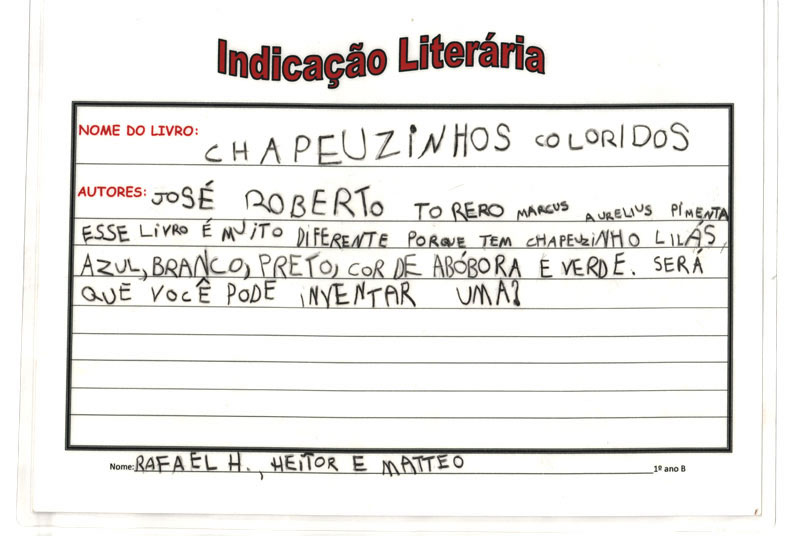 Indicação Literária
NOME DO LIVRO: CHAPEUZINHOS COLORIDOS
AUTORES: JOSÉ ROBERTO TORERO MARCUS AURELIUS PIMENTA
ESSE LIVRO É MUITO DIFERENTE PORQUE TEM CHAPEUZINHO LILÁS,
AZUL, BRANCO, PRETO, COR DE ABÓBORA E VERDE. SERÁ
QUE VOCÊ PODE INVENTAR UMA?
Nome: RAFAEL H., HEITOR E MATTEO 1º ano B